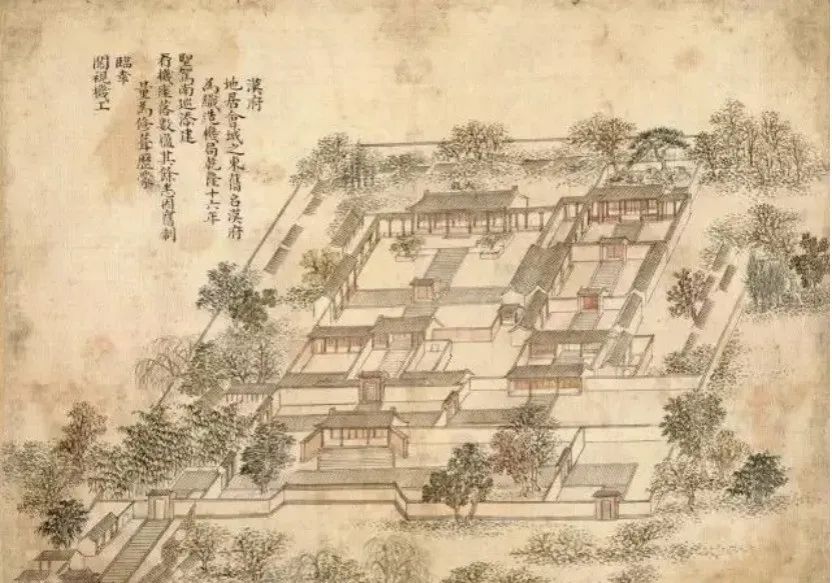 漢府
地居會城之東舊名漢府
為織造機局乾隆十六年
聖駕南巡添建
看機座落數楹其餘悉因舊制
量為修葺歷蒙
臨幸
閱視機工